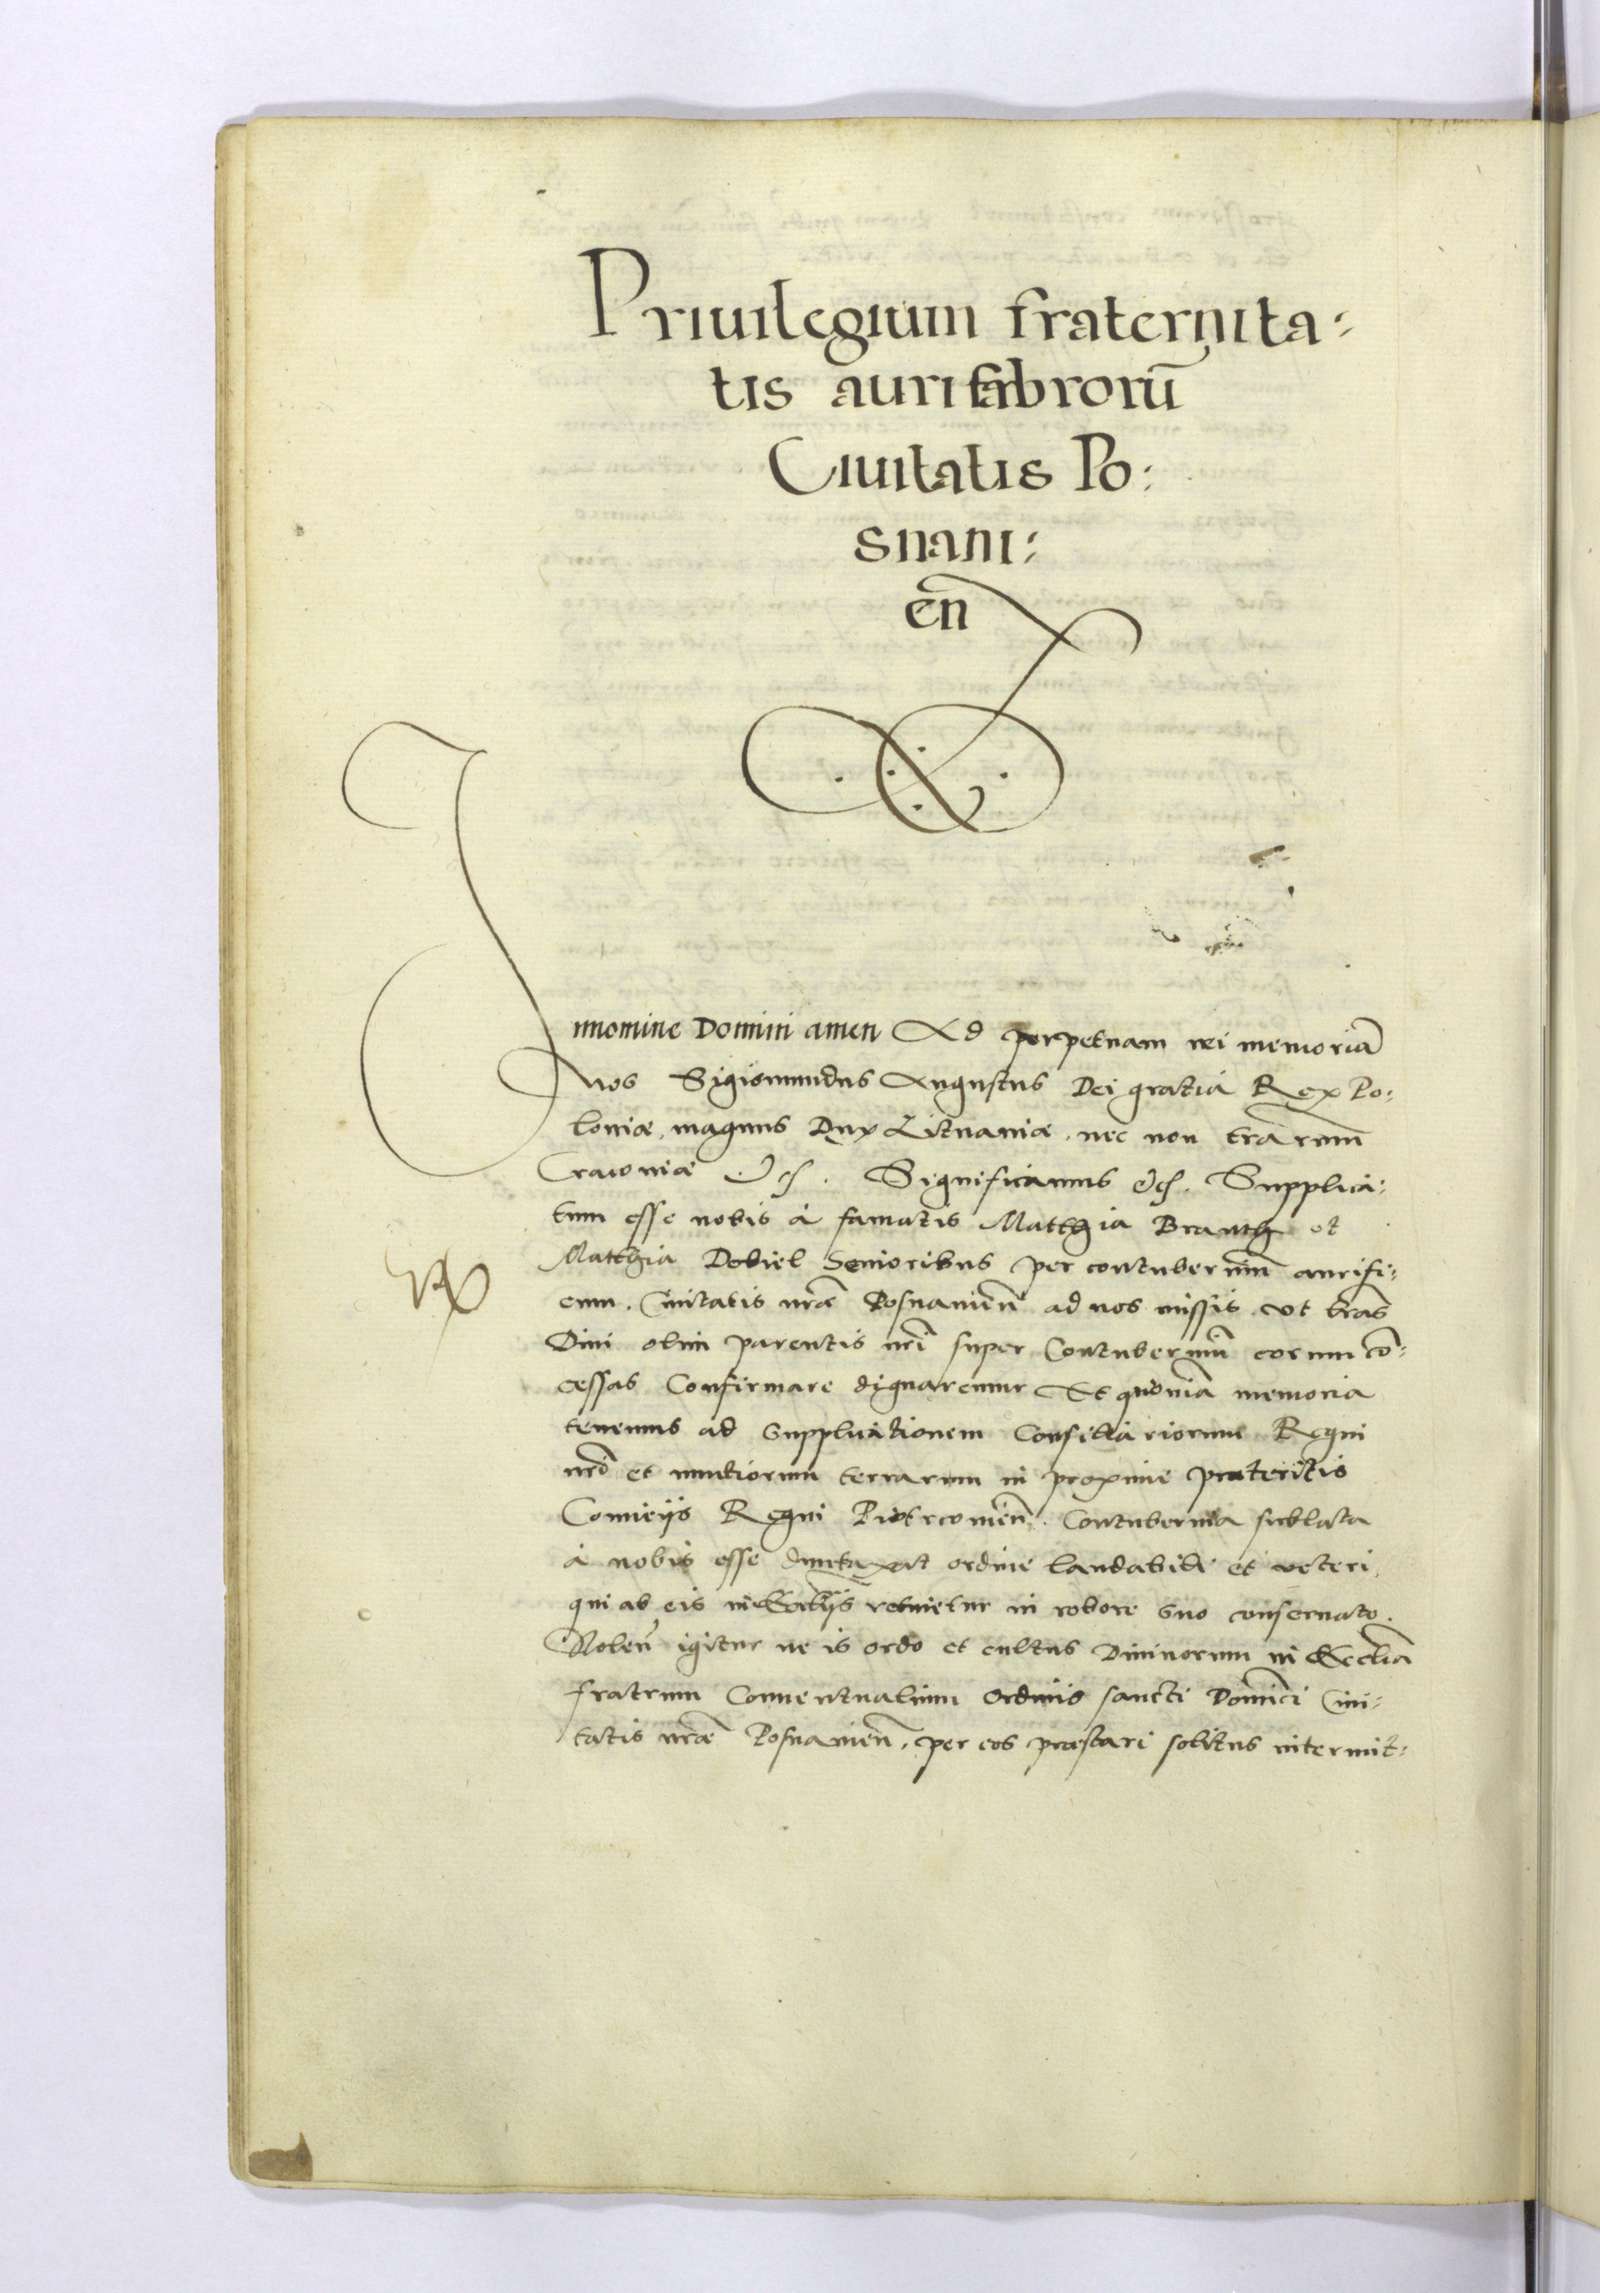 Priuilegium fraternita:
tis aurifabrorū
Ciuitatis Po:
snani:
en̄
Innomine Domini amen Ad perpetuam rei memoriā
nos Sigismundus Augustus Dei gratia Rex Po:
loniæ, magnus Dux Lituaniæ, nec non tr̄arum
Cracouiæ &c. Significamus &c. Supplica:
tum esse nobis á famatis Matthia Branth et
Matthia Dobiel Senioribus per contuberniū aurifi:
cum. Ciuitatis nr̄æ Posnanien̄ ad nos missis vt lr̄as
Diui olim parentis nr̄i super Contuberniū eorum cō:
cessas Confirmare dignaremur Et quoniā memoria
tenemus ad Supplicationem Consiliariorum Regni
nr̄i et nuntiorum terrarum in proxime præteritis
Comicijs Regni Piotrcouien̄. Contubernia sublata
á nobis esse duntaxat ordine laudabili et veteri,
qui ab eis in retinetur in robore suo conseruato.
Nolen̄ igitur ne is ordo et cultus Diuinorum in Ecclīa
fratrum Conuentualium Ordinis sancti Dominici Ciui:
tatis nr̄æ Posnanien̄, per eos præstari solitus intermit: